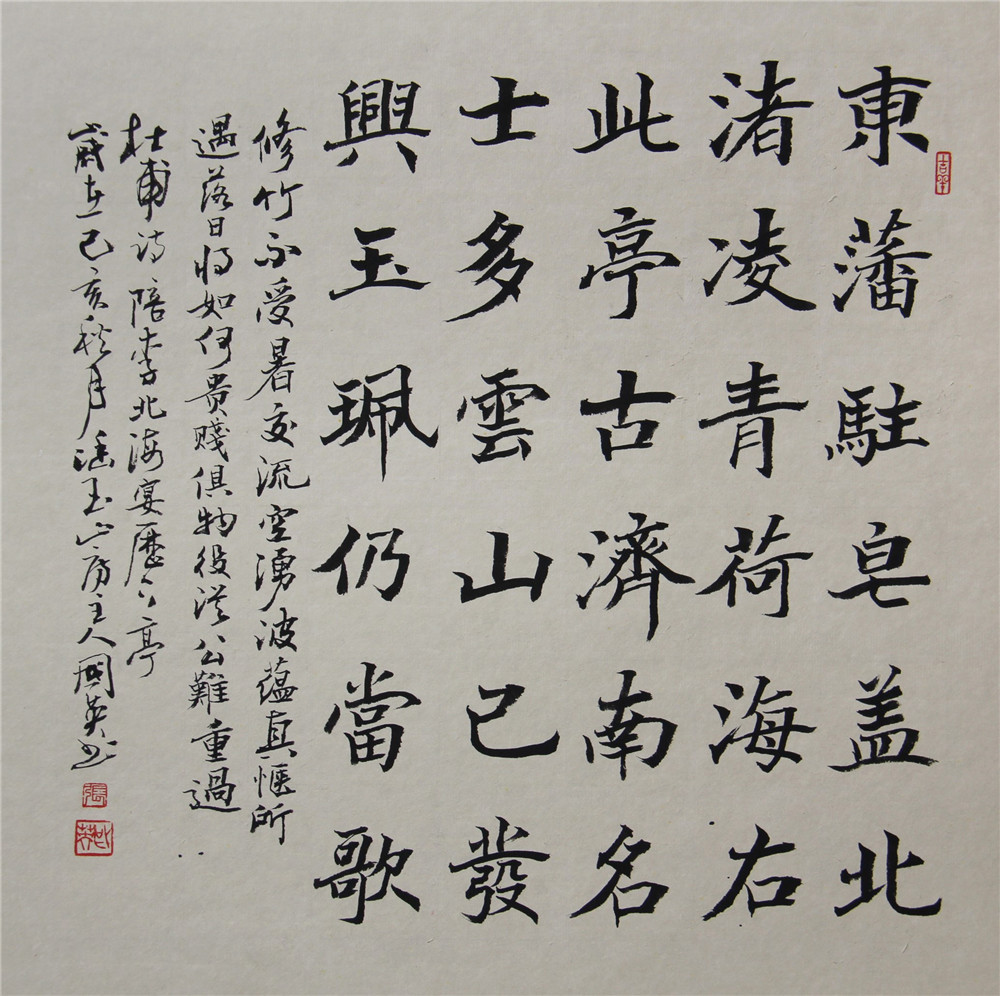 東藩駐皂盖北
渚凌青荷海右
此亭古濟南名
士多雲山已發
興玉珮仍當歌
修竹不受暑交流空湧波蕴真惬所
遇落日将如何贵賤俱物役從公難重過
杜甫诗陪李北海宴歷下亭
歲在己亥秋月涵玉山房主人國英书
張